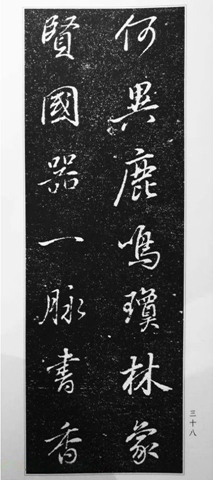 何異鹿鳴瓊林家
賢國器一脉書香
三十八